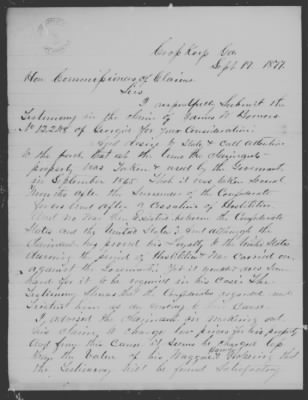 Crop Keep Ga
Sept 17, 1877
Hon Commissioners of Claims
Sirs
I respectfully Submit the
Testimony in the Claim of James W.
No 12,208 of Georgia for your Consideration
and desire to State & Call attention
to the fact that at the time the Claimants
property was taken & used by the Government
in September 1865 that it was taken
the date the Surrender of the Confederate
forces and after a Cessation of Hostilities
and no War then Existed between the Confederate
States and the United States & that although the
Claimant has proved his Loyalty to the United States
during the period of Hostilities War carried on
against the Government Yet it
for it to be required in his Case The
Testimony Shows that the Confederates regarded and
him as an Enemy to their Cause
I advised the Claimant in making out
his Claim, to Charge low prices for his property
and from this Cause it seems he charged less
than the Value of his Waggon Hoping that
the Testimony will be found Satisfactory